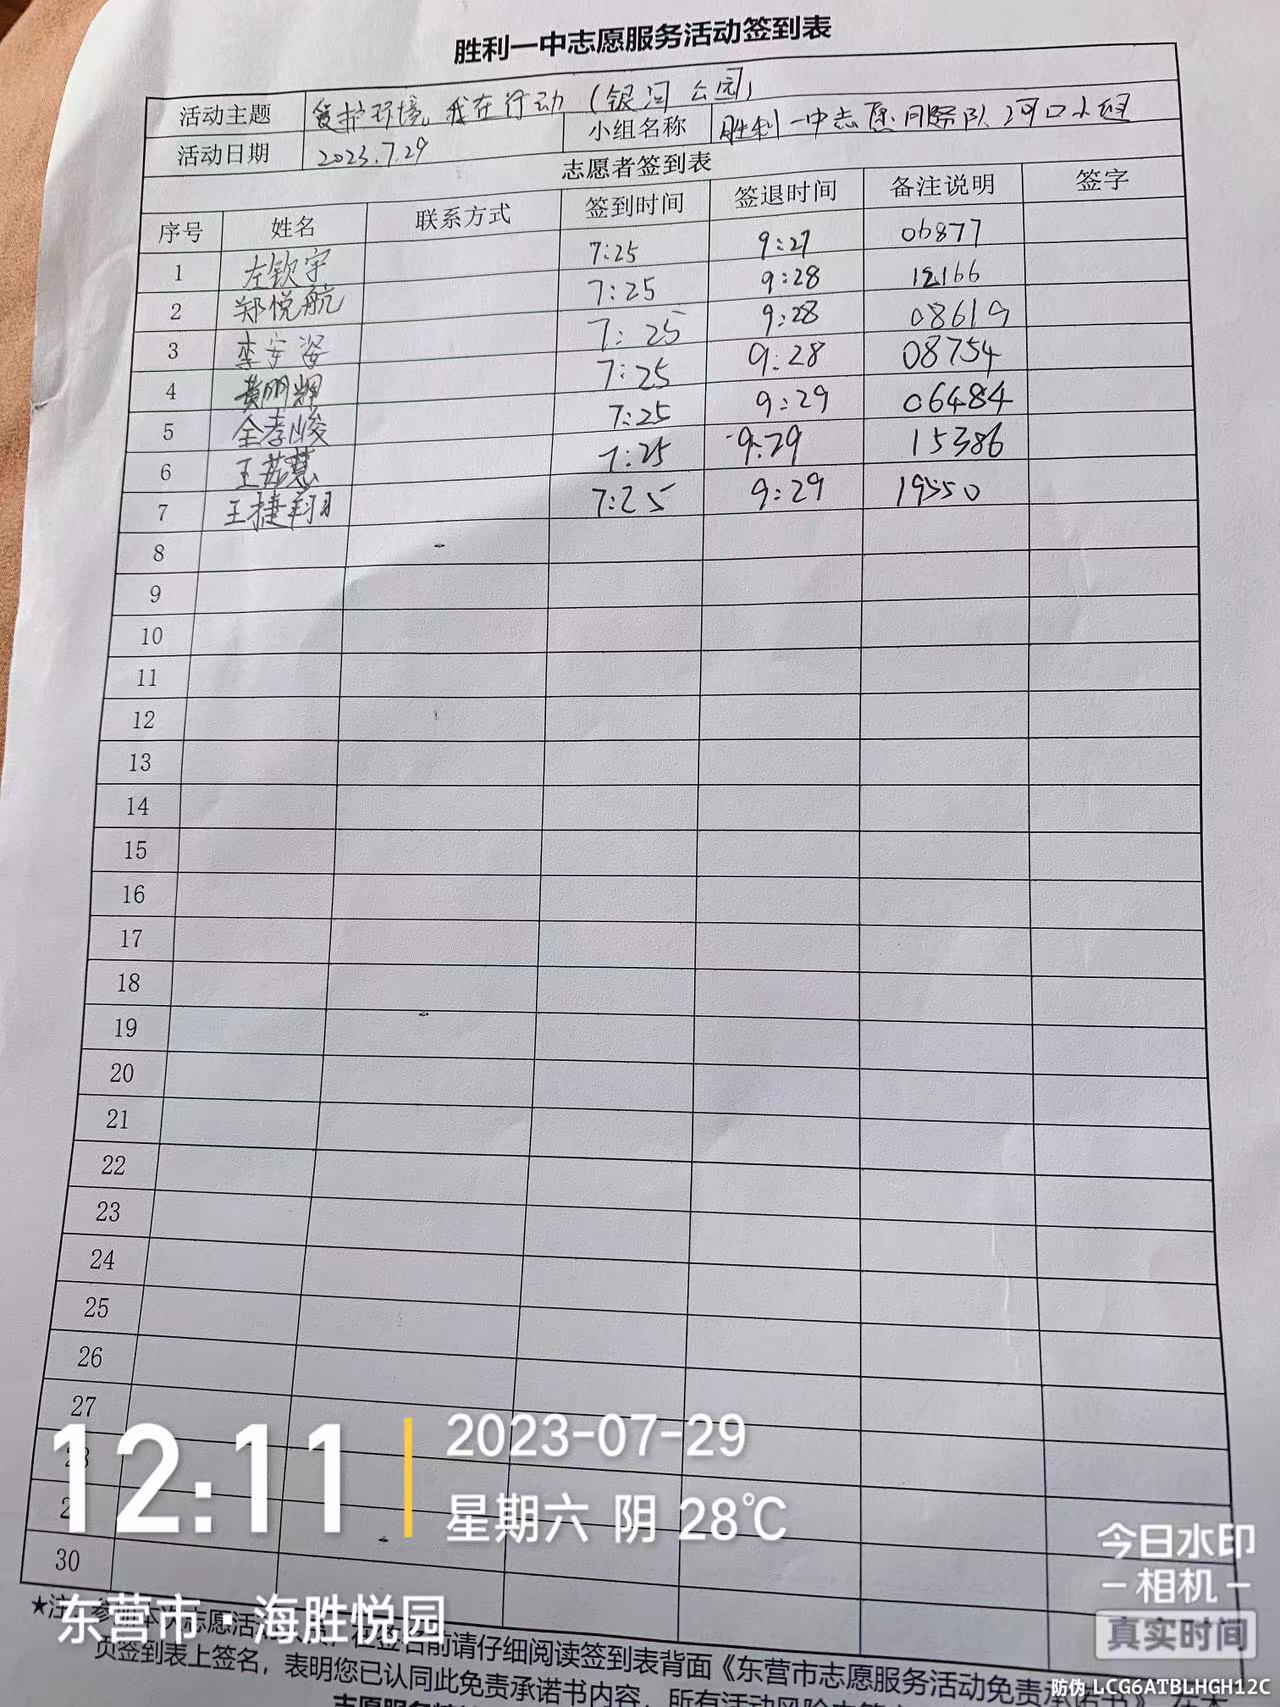 胜利一中志愿服务活动签到表
活动主题 爱护环境,我在行动(银河公园)
活动日期 2023.7.29 小组名称 胜利一中志愿服务队河口小组
志愿者签到表
序号 姓名 联系方式 签到时间 签退时间 备注说明 签字
1 左钦宇 7:25 9:27 06877
2 郑悦航 7:25 9:28 12166
3 李安姿 7:25 9:28 08619
4 黄明翔 7:25 9:28 08754
5 全孝峻 7:25 9:29 06484
6 王茹慧 7:25 9:29 15386
7 王捷翔 7:25 9:29 19550
8
9
10
11
12
13
14
15
16
17
18
19
20
21
22
23
24
25
26
27
28
2
30
12:11 2023-07-29
星期六 阴 28℃
东营市·海胜悦园
今日水印
相机
真实时间
防伪 LCG6ATBLHGH12C
★注 参 本次志愿活 签名前请仔细阅读签到表背面《东营市志愿服务活动免责承诺书》
页签到表上签名,表明您已认同此免责承诺书内容,所有活动风险由
志愿服务